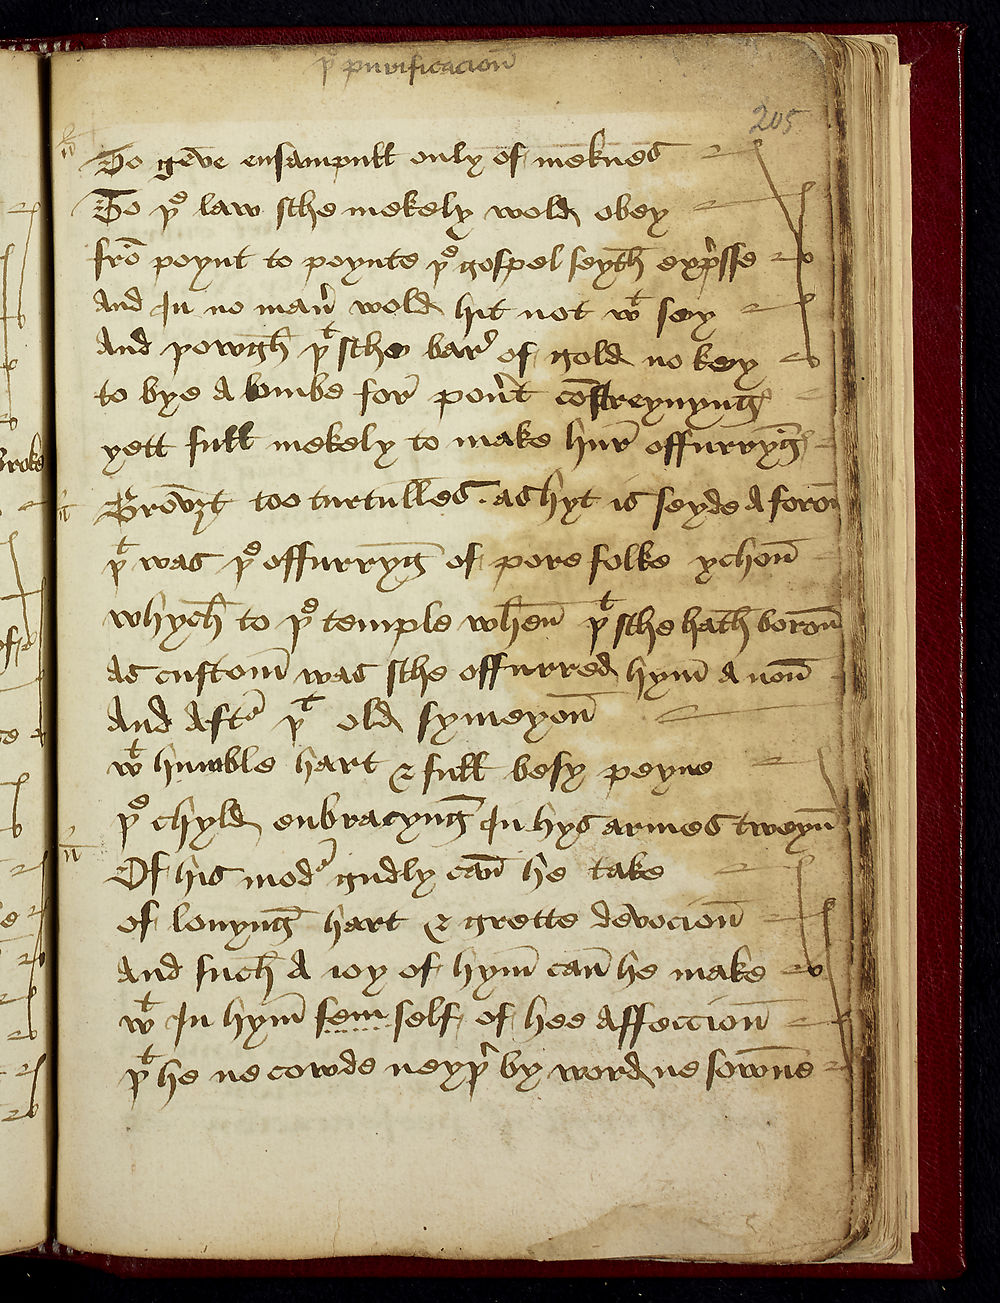 þe purificacion̄
205
To gēve ensampull only of meknes
To þe law sche mekely wold obey
frō poynt to poynte þe gospel seyth exp̄sse
And In no man̄ wold hit not wt sey
And þowgh þt sche bar of gold no key
to bye A lombe for poūt cōstreynyng
yett full mekely to make hur offurryng
Brōvȝt too turtulles · as hyt is seyde A foron̄
þt was þe offurryng of pore folke ychon̄
whych to þe temple when̄ þt sche hath boron̄
As custom̄ was sche offurred hym̄ A non̄
And Aft̄ þt old symeyon̄
wt humble hart & full besy peyne
þe chyld enbracyng In hys armes tweyn̄
Of his mod̄ gudly can̄ he take
of louyng hart & grette dēvocion̄
And such A ioy of hym̄ can̄ he make
wt In hym̄ sem self of hee Affeccion̄
þt he ne cowde neyþ̄ by word ne sowne